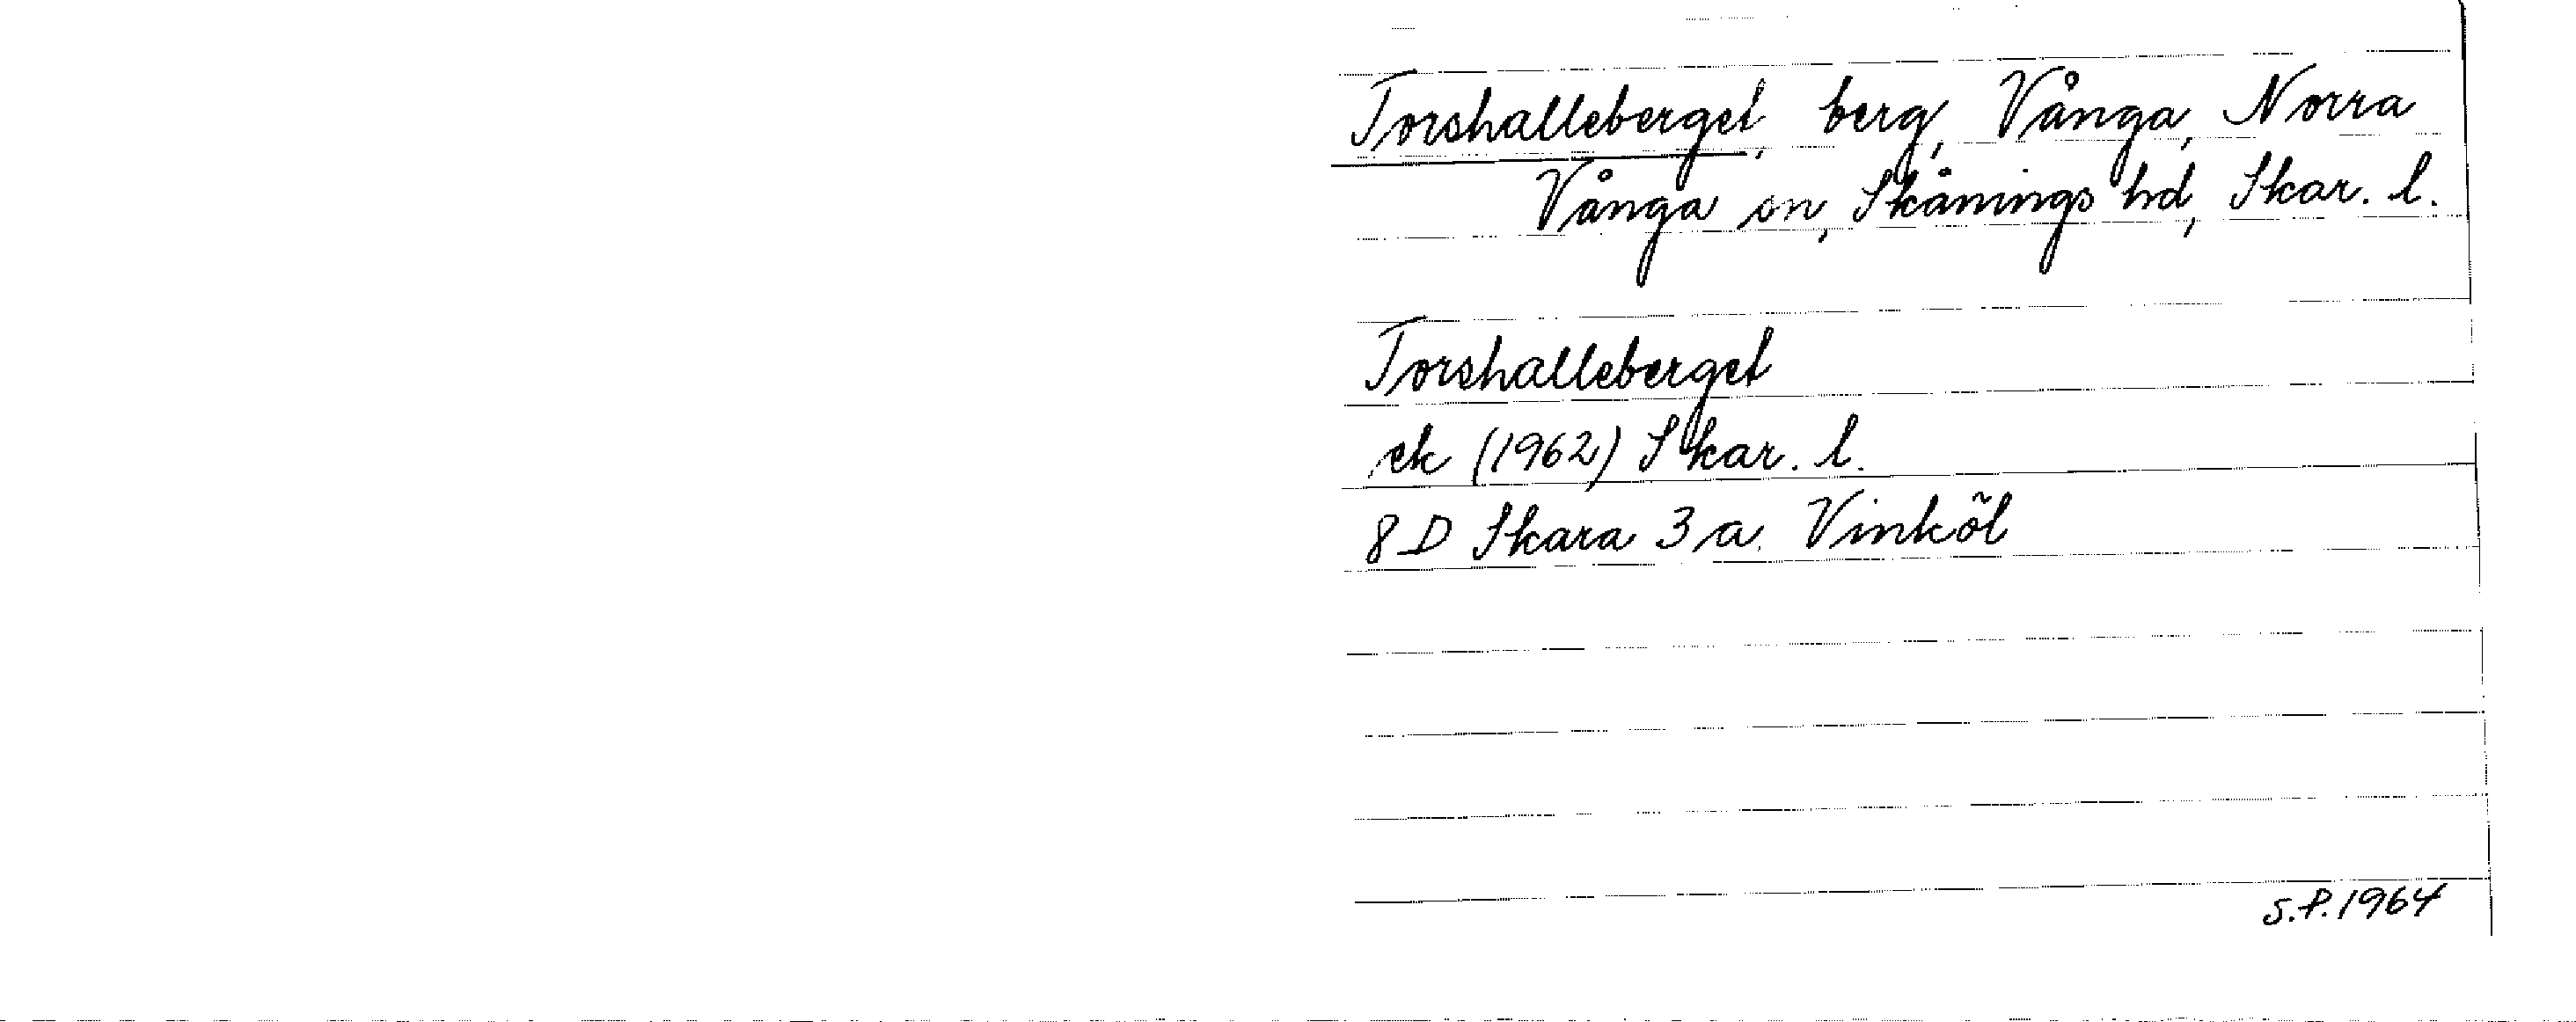 Torshalleberget, berg, Vånga, Norra
Vånga sn, Skånings hd, Skar. l.
Torshalleberget
ek (1962) Skar. l.
8 D Skara 3 a. Vinköl
S.P. 1964